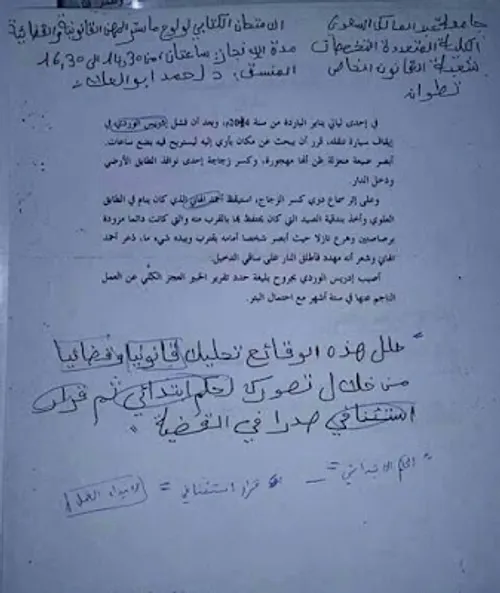 جامعة عبد المالك السعدي
الكلية المتعددة التخصصات
شعبة القانون الخاص
تطوان
الامتحان الكتابي لولوج ماستر المهن القانونية والقضائية
مدة الإنجاز ساعتان من 14,30 الى 16,30
المنسق: د. احمد ابو العلاء
في إحدى ليالي يناير الباردة من سنة 2014م، وبعد أن فشل إدريس الوردي في
إيقاف سيارة تنقله، قرر أن يبحث عن مكان يأوي إليه ليستريح فيه بضع ساعات.
أبصر ضيعة منعزلة ظن أنها مهجورة، وكسر زجاجة إحدى نوافذ الطابق الأرضي
ودخل الدار.
وعلى إثر سماع دوي كسر الزجاج، استيقظ أحمد الهاني الذي كان ينام في الطابق
العلوي وأخذ بندقية الصيد التي كان يحتفظ بها بالقرب منه والتي كانت دائما مزودة
برصاصتين وهرع نازلا حيث أبصر شخصا أمامه يقترب وبيده شيء ما، ذعر أحمد
الهاني وشعر أنه مهدد فأطلق النار على ساقي الدخيل.
أصيب إدريس الوردي بجروح بليغة حدد تقرير الخبير العجز الكلي عن العمل
الناجم عنها في ستة أشهر مع احتمال البتر.
" حلل هذه الوقائع تحليلا قانونيا وقضائيا
من خلال تصورك لحكم ابتدائي ثم قرار
استئنافي صدرا في القضية "
" الحكم الابتدائي = _ قرار استئنافي =